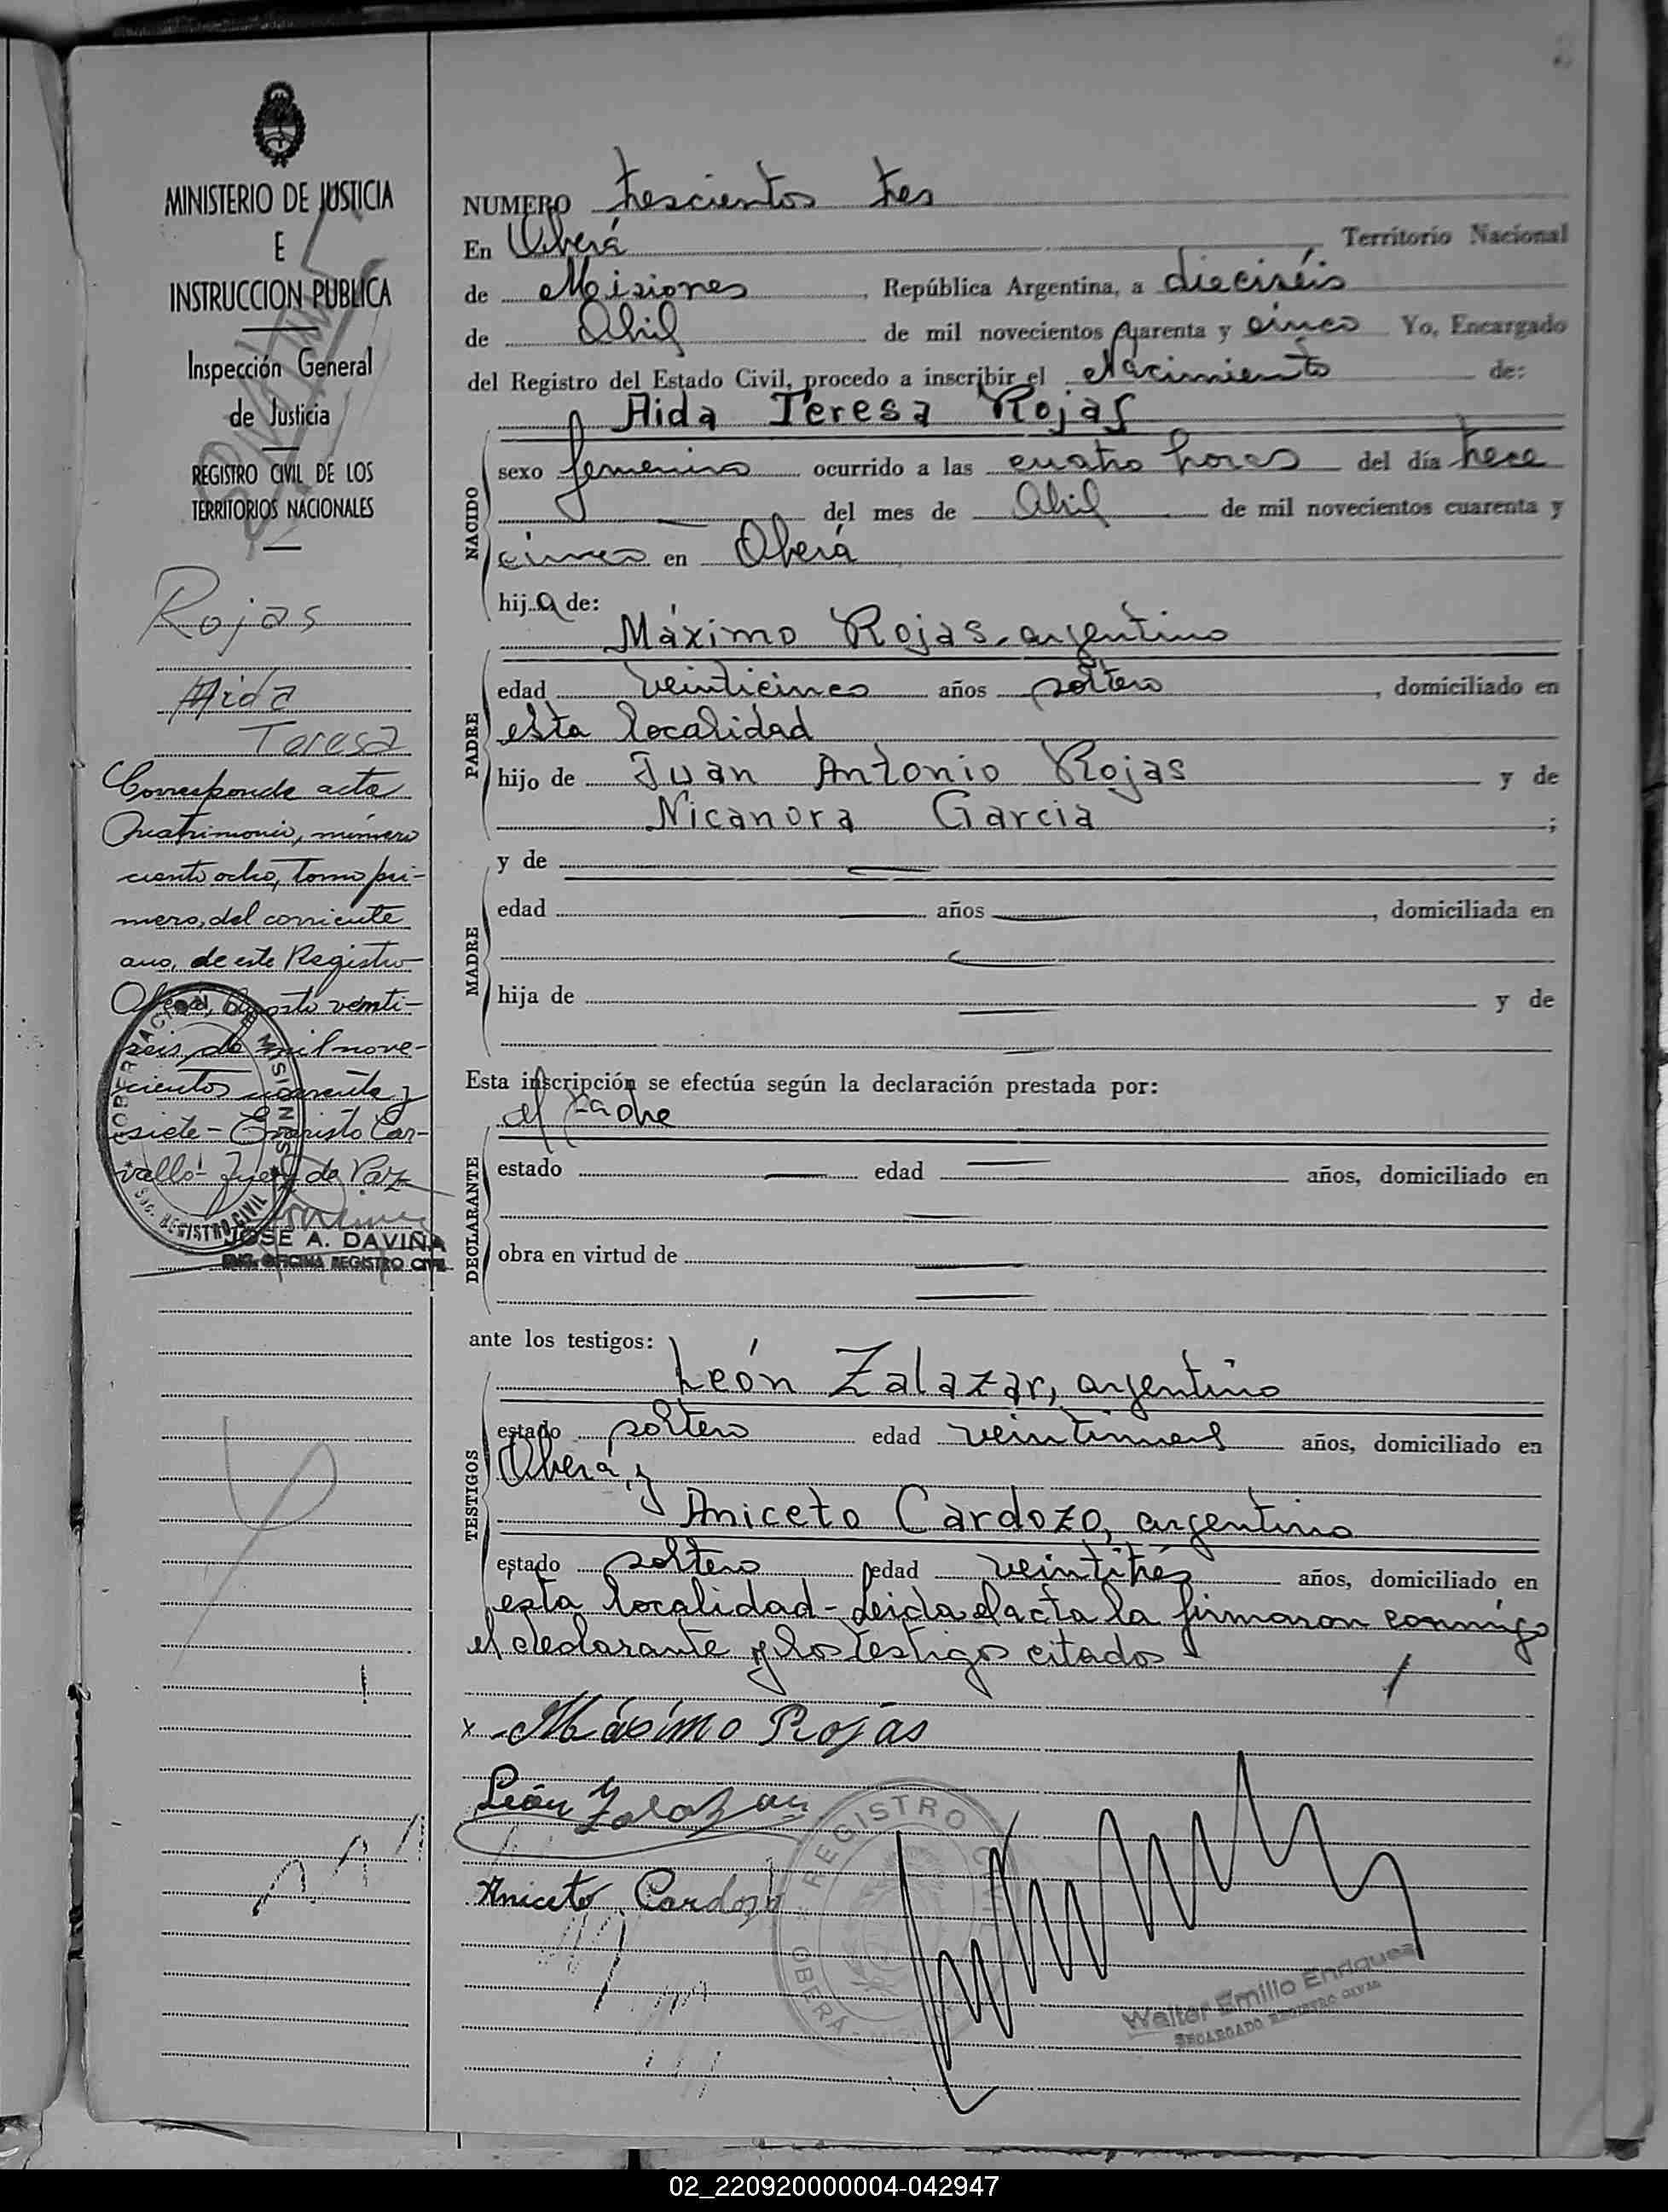 MINISTERIO DE JUSTICIA
E
INSTRUCCION PUBLICA
Inspección General
de Justicia
REGISTRO CIVIL DE LOS
TERRITORIOS NACIONALES
Rojas
Aida
Teresa
Corresponde acta
Matrimonio, número
ciento ocho, Tomo pri-
mero, del corriente
año, de este Registro
Oberá, Agosto veinti-
seis de mil nove-
cientos cuarenta y
siete - Evaristo Car-
vallo - Juez de Paz
GOBERNACION DE MISIONES
REGISTRO CIVIL
JOSE A. DAVIÑA
ENC. OFICINA REGISTRO CIVIL
NUMERO trescientos tres
En Oberá Territorio Nacional
de Misiones, República Argentina, a dieciséis
de Abril de mil novecientos cuarenta y cinco Yo, Encargado
del Registro del Estado Civil, procedo a inscribir el Nacimiento de:
Aida Teresa Rojas
NACIDO
sexo femenino ocurrido a las cuatro horas del día trece
del mes de Abril de mil novecientos cuarenta y
cinco en Oberá
hija de:
Máximo Rojas, argentino
PADRE
edad veinticinco años soltero, domiciliado en
esta localidad
hijo de Juan Antonio Rojas y de
Nicanora Garcia;
y de
MADRE
edad años, domiciliada en
hija de y de
Esta inscripción se efectúa según la declaración prestada por:
el padre
DECLARANTE
estado edad años, domiciliado en
obra en virtud de
ante los testigos:
León Zalazar, argentino
TESTIGOS
estado soltero edad años, domiciliado en
Oberá, y
Aniceto Cardozo, argentino
estado soltero edad veintitrés años, domiciliado en
esta localidad - Leida el acta la firmaron conmigo
el declarante y los testigos citados
x Máximo Rojas
León Zalazar
Aniceto Cardozo
REGISTRO CIVIL
OBERÁ
Walter Emilio Enriquez
ENCARGADO REGISTRO CIVIL
02_220920000004-042947